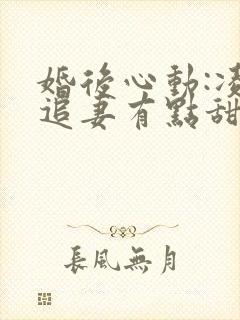 婚後心動:凌
追妻有點甜
長風無月